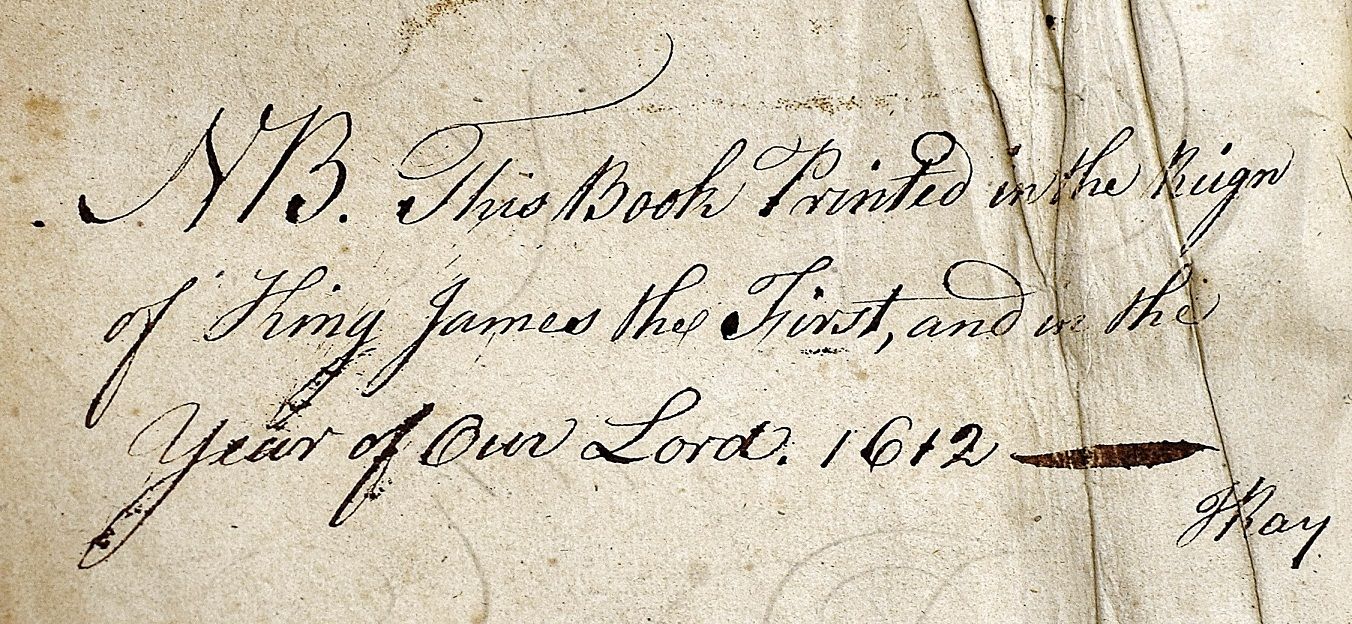 NB. This Book Printed in the Reign
of King James the First, and in the
Year of Our Lord. 1612